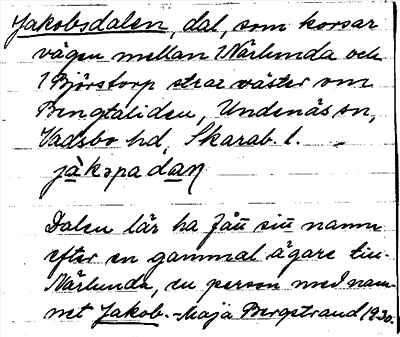 Jakobsdalen, dal, som korsar
vägen mellan 1 Närlunda och
1 Björstorp strax väster om
Bengtaliden, Undenäs sn,
Vadsbo hd, Skarab. l.
jàkəpadaṇ
Dalen lär ha fått sitt namn
efter en gammal ägare till
Närlunda, en person med nam-
net Jakob. - Maja Bergstrand 1930.